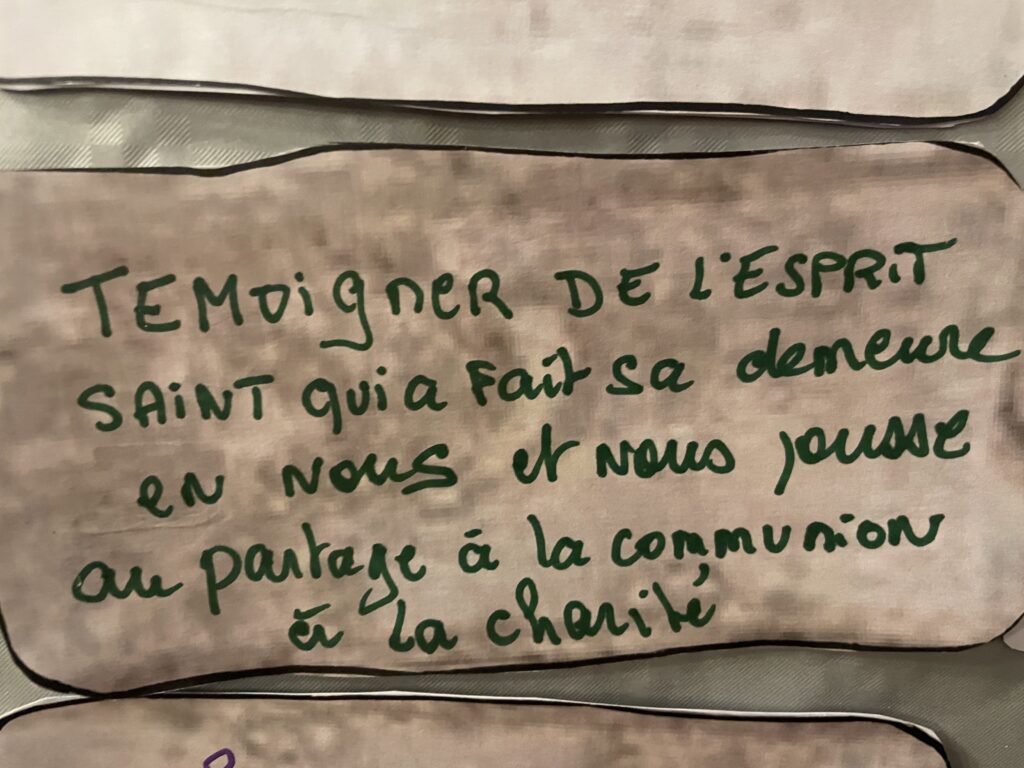 TEMOigneR DE L'ESPRiT
SAiNT qui a Fait sa demeure
en nous et nous pousse
au partage à la communion
à la charité